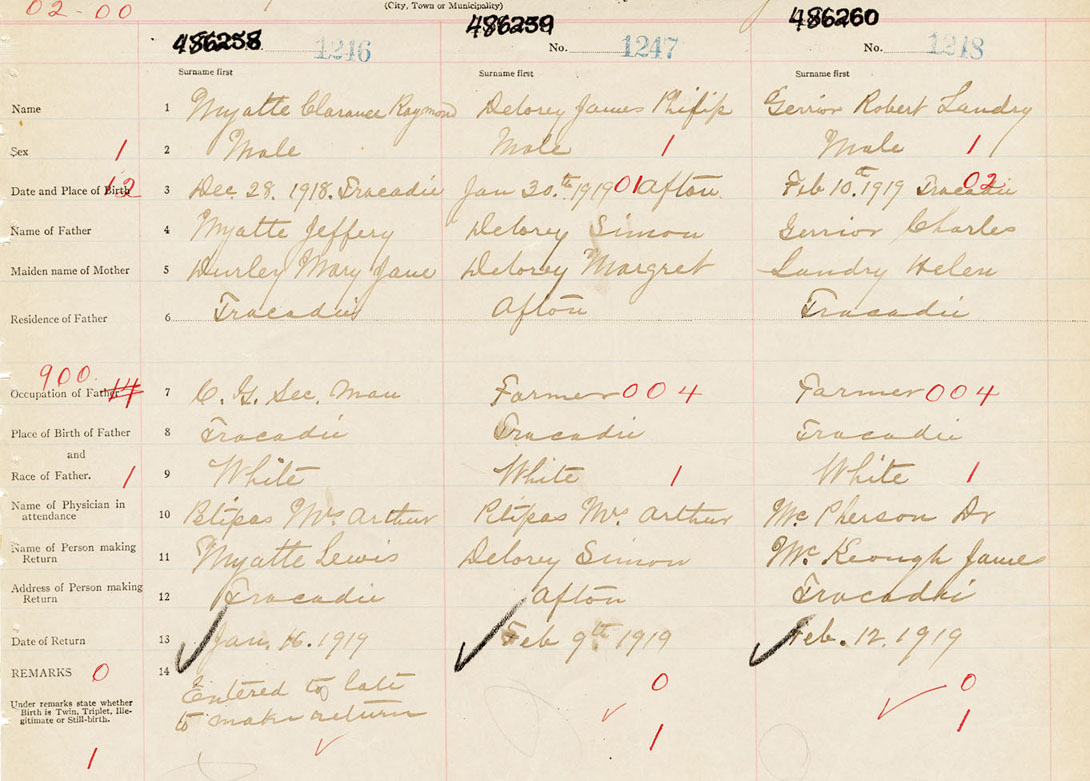 (City, Town or Municipality)
02-00
486258 1246 486259 No. 1247 486260 No. 1248
Surname first Surname first Surname first
Name 1 Myatte Clarance Raymond Delorey James Philip Gerrior Robert Landry
Sex 1 2 Male Male 1 Male 1
Date and Place of Birth 12 3 Dec. 28. 1918. Tracadie Jan 30.th 1919 01 Afton. Feb 10.th 1919 Tracadie 02
Name of Father 4 Myatte Jeffery Delorey Simon Gerrior Charles
Maiden name of Mother 5 Durley Mary Jane Delorey Margret Landry Helen
Residence of Father 6 Tracadie Afton Tracadie
900
Occupation of Father 14 7 C. G. Sec. Man Farmer 004 Farmer 004
Place of Birth of Father 8 Tracadie Tracadie Tracadie
and
Race of Father. 1 9 White White 1 White 1
Name of Physician in
attendance 10 Mrs Arthur Mrs Arthur McPherson Dr
Name of Person making
Return 11 Myatte Lewis Delorey Simon McKeough James
Address of Person making
Return 12 Tracadie Afton Tracadie
Date of Return 13 Jan. 16. 1919 Feb 9th 1919 Feb. 12. 1919
REMARKS 0 14 Entered to late 0 0
Under remarks state whether
Birth is Twin, Triplet, Ille-
gitimate or Still-birth. to make return
1 1 1